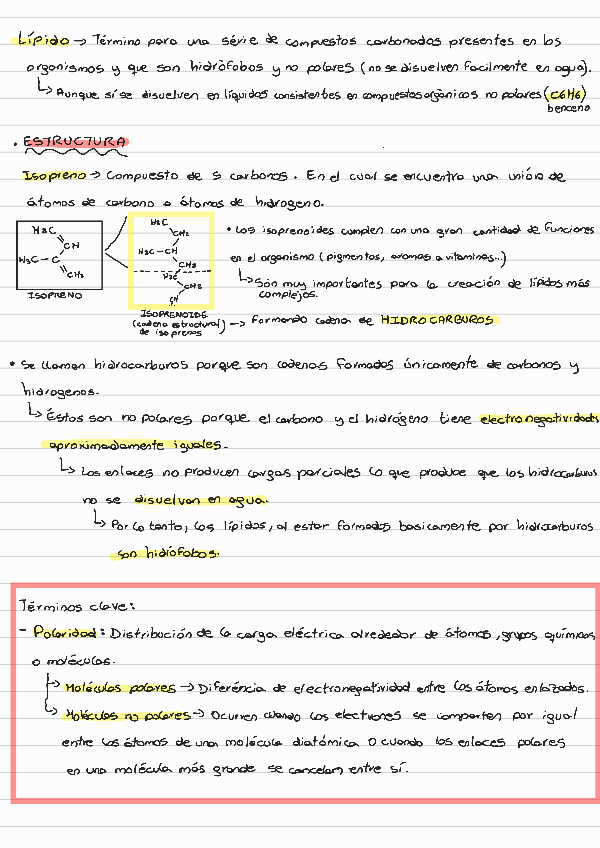 Lípido → Término para una série de compuestos carbonados presentes en los
organismos y que son hidrófobos y no polares (no se disuelven facilmente en agua).
↳ Aunque sí se disuelven en líquidos consistentes en compuestos orgànicos no polares (C6H6)
benceno
• ESTRUCTURA
Isopreno → Compuesto de 5 carbonos. En el cual se encuentra una unión de
átomos de carbono a átomos de hidrogeno.
H3C
CH
H3C – C
CH2
ISOPRENO
H3C
CH2
H3C – CH
CH2
H2C
CH2
CH
ISOPRENOIDE
(cadena estructural)
de isoprenos
• Los isoprenoides cumplen con una gran cantidad de funciones
en el organismo (pigmentos, aromas o vitaminas...)
↳ Són muy importantes para la creación de lípidos más
complejos.
→ Formando cadena de HIDROCARBUROS
• Se llaman hidrocarburos porque son cadenas formadas únicamente de carbonos y
hidrogenos.
↳ Éstos son no polares porque el carbono y el hidrógeno tiene electronegatividades
aproximadamente iguales.
↳ Los enlaces no producen cargas parciales lo que produce que los hidrocarburos
no se disuelvan en agua.
↳ Por lo tanto, los lípidos, al estar formados basicamente por hidrocarburos
son hidrófobos.
Términos clave:
- Polaridad: Distribución de la carga eléctrica alrededor de átomos, grupos químicos
o moléculas.
↳ Moléculas polares → Diferéncia de electronegatividad entre los átomos enlazados.
↳ Moléculas no polares → Ocurren cuando los electrones se comparten por igual
entre los átomos de una molécula diatómica o cuando los enlaces polares
en una molécula más grande se cancelan entre sí.